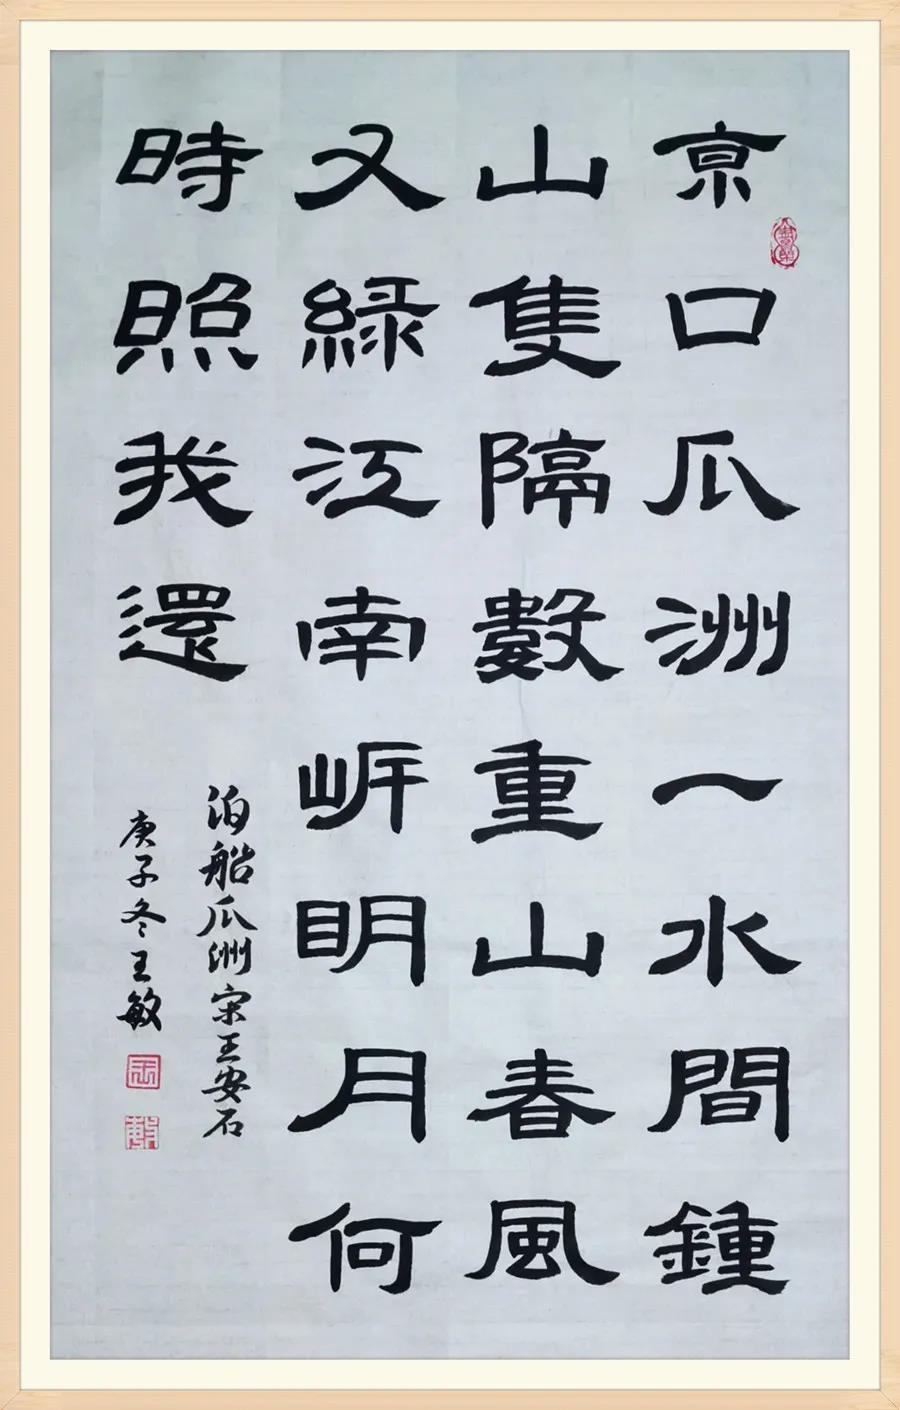 京口瓜洲一水間鍾
山隻隔數重山春風
又緑江南岍明月何
時照我還
泊船瓜洲宋王安石
庚子冬王敏